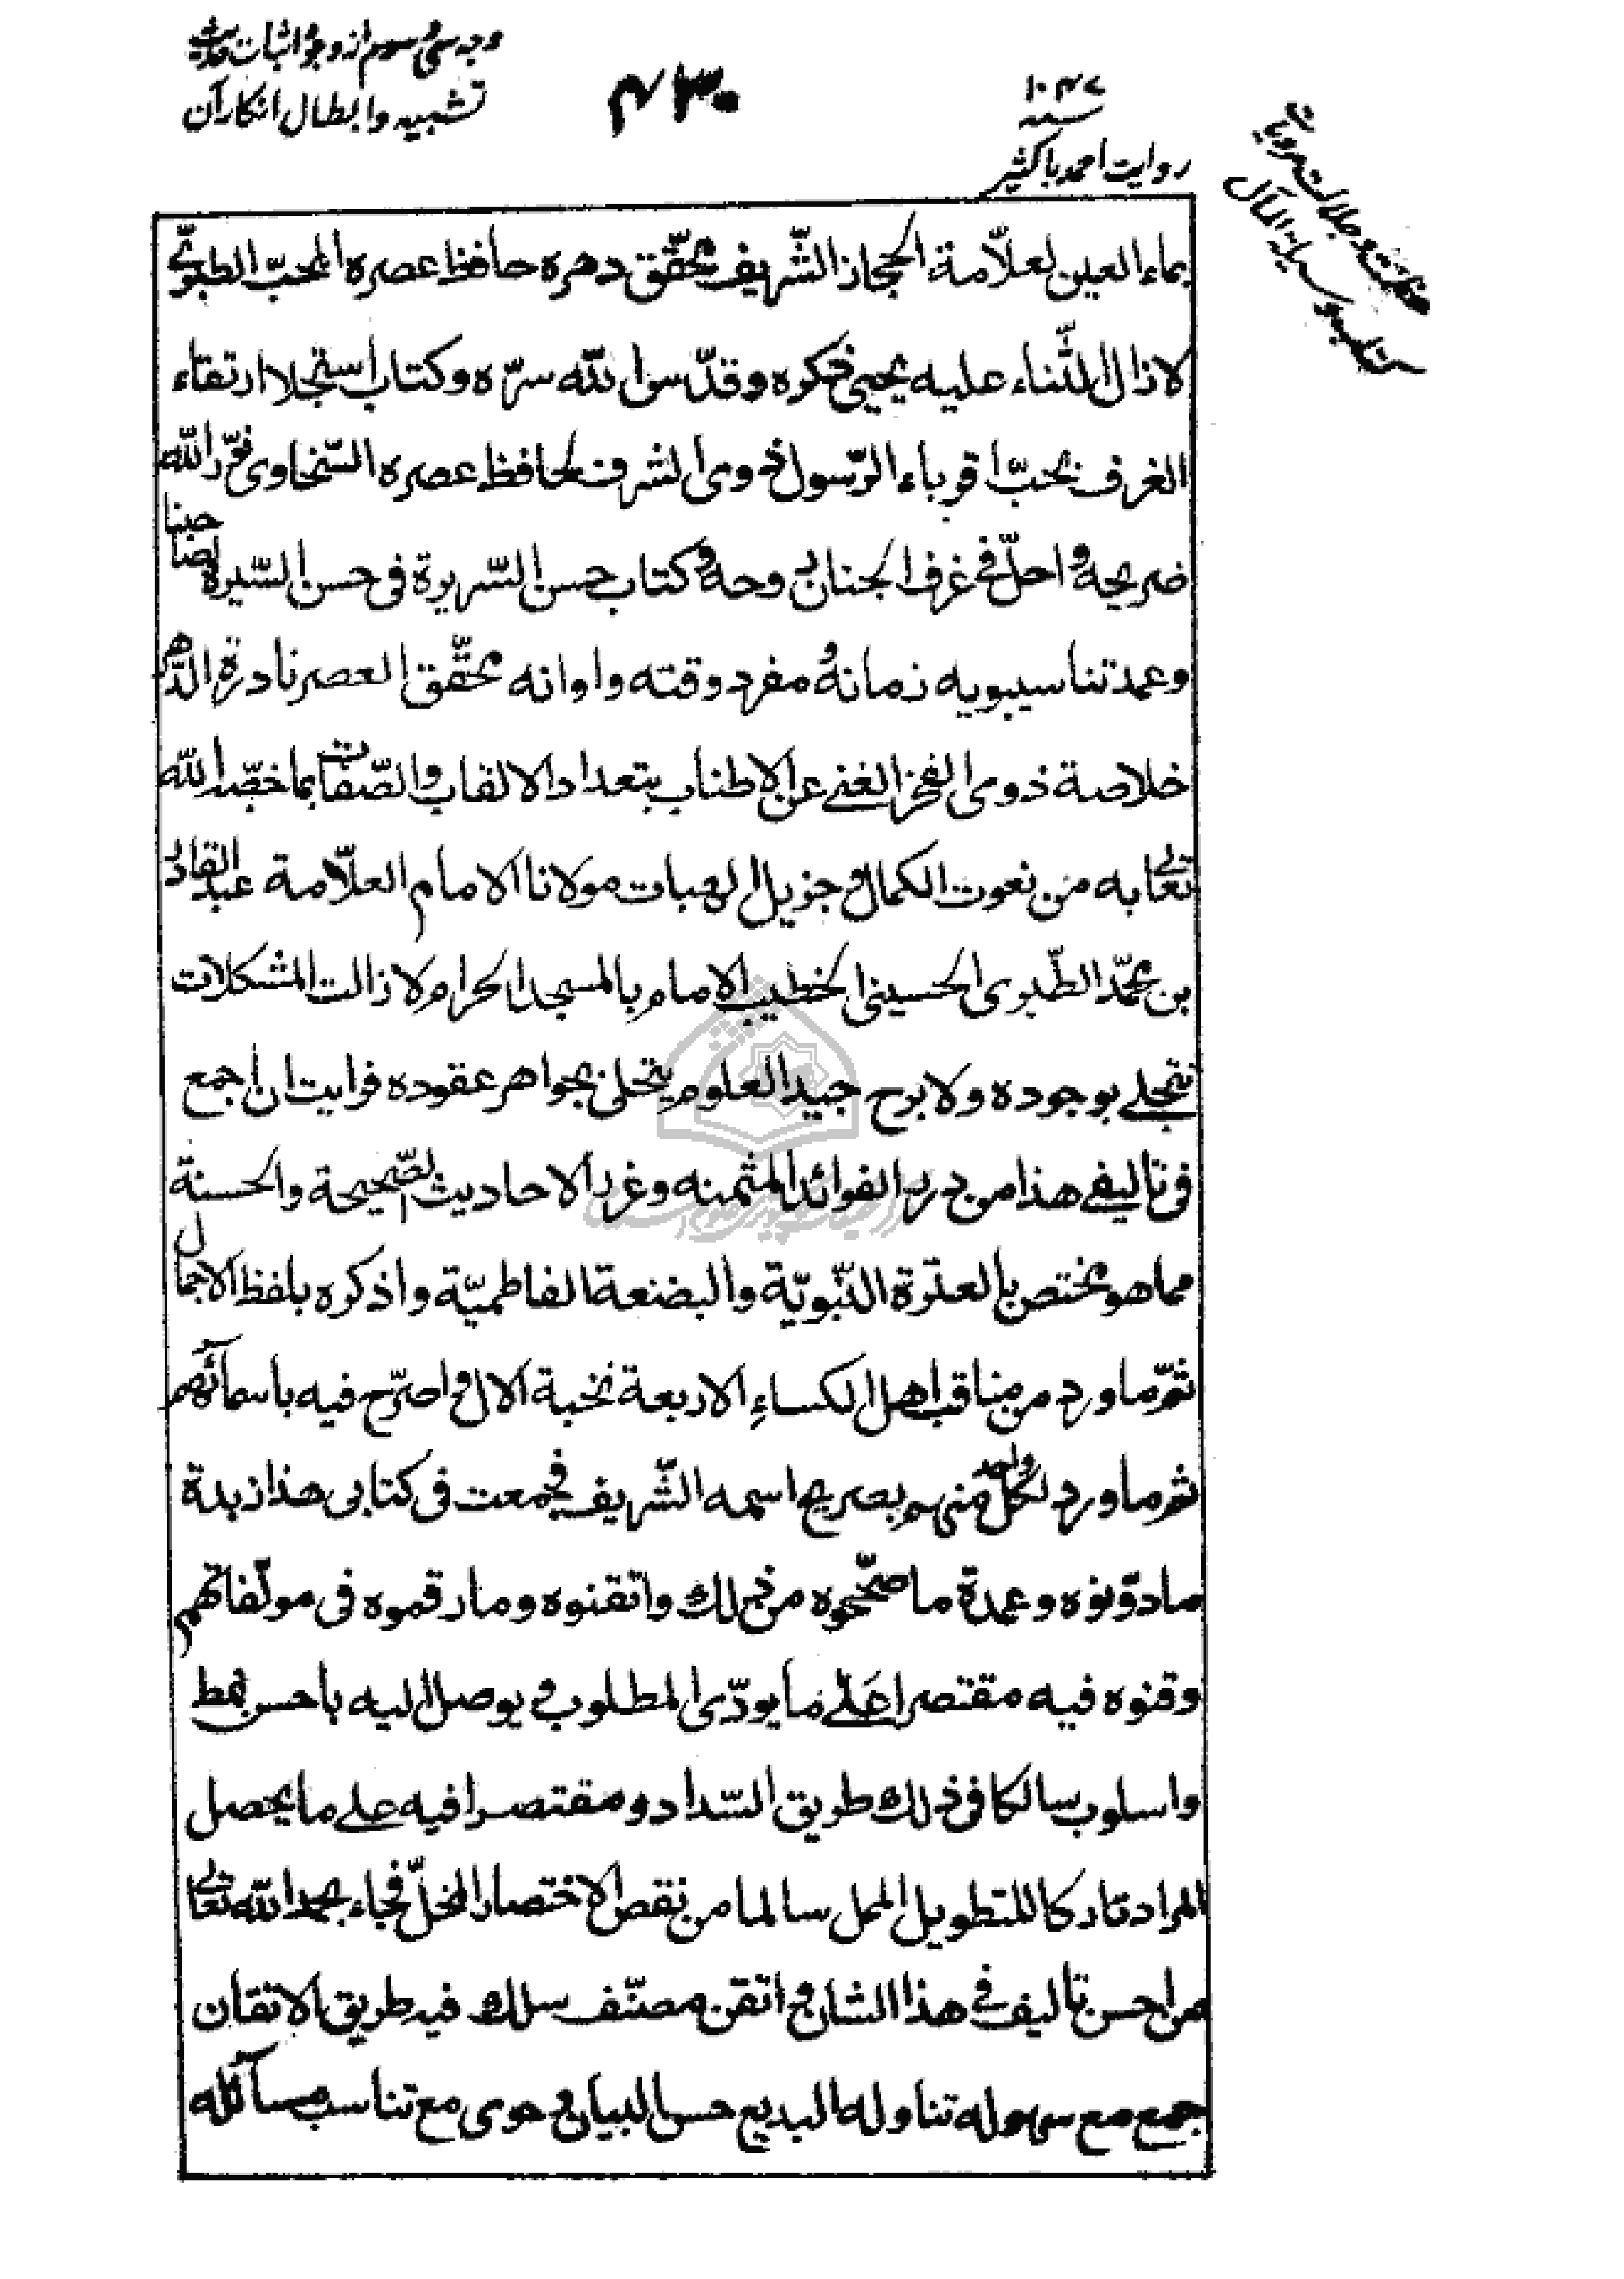 وجه سی و سوم از وجوه اثبات حدیث
تشبیه و ابطال انکار آن
۴۳۰
۱۰۴۷
سنه
روایت احمد باکثیر
عظمت و جلالت مرویات
کتاب وسیلة المآل
بماء العین لعلّامة الحجاز الشّریف محقّق دهره حافظ عصره المحبّ الطبری
لا زال الثّناء علیه یحیی ذکره وقدّس الله سرّه وکتاب استجلا ارتقاء
الغرف بحبّ اقرباء الرّسول ذوی الشرف لحافظ عصره السّخاوی نوّر الله
ضریحه واحلّ فی غرف الجنان روحه وکتاب حسن السّریرة فی حسن السّیرة لصاحبنا
وعمدتنا سیبویه زمانه ومفرد وقته واوانه محقّق العصر نادرة الدّهر
خلاصة ذوی الفخر الغنی عن الاطناب بتعداد الالقاب والصّفات بما خصّه الله
تعالی به من نعوت الکمال وجزیل الهبات مولانا الامام العلّامة عبد القادر
بن محمّد الطّبری الحسینی الخطیب الامام بالمسجد الحرام لا زالت المشکلات
تنجلی بوجوده ولا برح جید العلوم یتحلی بجواهر عقوده فرایت ان اجمع
فی تالیفی هذا من درر الفوائد المثمنه وغرر الاحادیث الصّحیحة والحسنة
مما هو مختص بالعترة النّبویّة والبضعة الفاطمیّة واذکره بلفظ الاجمال
ثمّ ما ورد من مناقب اهل الکساء الاربعة نخبة الال واصرّح فیه باسمآئهم
ثم ما ورد لکل واحد منهم بصریح اسمه الشّریف فجمعت فی کتابی هذا زبدة
ما دوّنوه وعمدة ما صحّحوه من ذلك واتقنوه وما رقموه فی مولّفاتهم
وقنوه فیه مقتصرا علی ما یودّی المطلوب ویوصل الیه باحسن نمط
واسلوب سالکا فی ذلك طریق السّداد ومقتصرا فیه علی ما یحصل
المراد تارکا للتطویل الممل سالما من نقص الاختصار المخلّ فجاء بحمد الله تعالی
من احسن تالیف فی هذا الشان واتقن مصنّف سلك فیه طریق الاتقان
جمع مع سهوله تناوله البدیع حسن البیان وحوی مع تناسب مسآئله